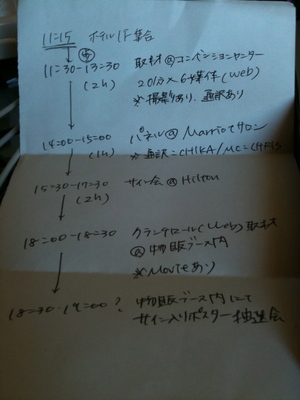 11:15 ホテル1F集合
11:30-13:30 取材@コンベンションセンター
(2h) 20分×6媒体(web)
※撮影あり、通訳あり
14:00-15:00 パネル@Marriottサロン
(1h) ※通訳=CHIKA/MC=CHRIS
15:30-17:30 サイン会@Hilton
(2h)
18:00-18:30 クランチロール(Web)取材
@物販ブース内
※Movieあり
18:30-19:00? 物販ブース内にて
サイン入りポスター抽選会